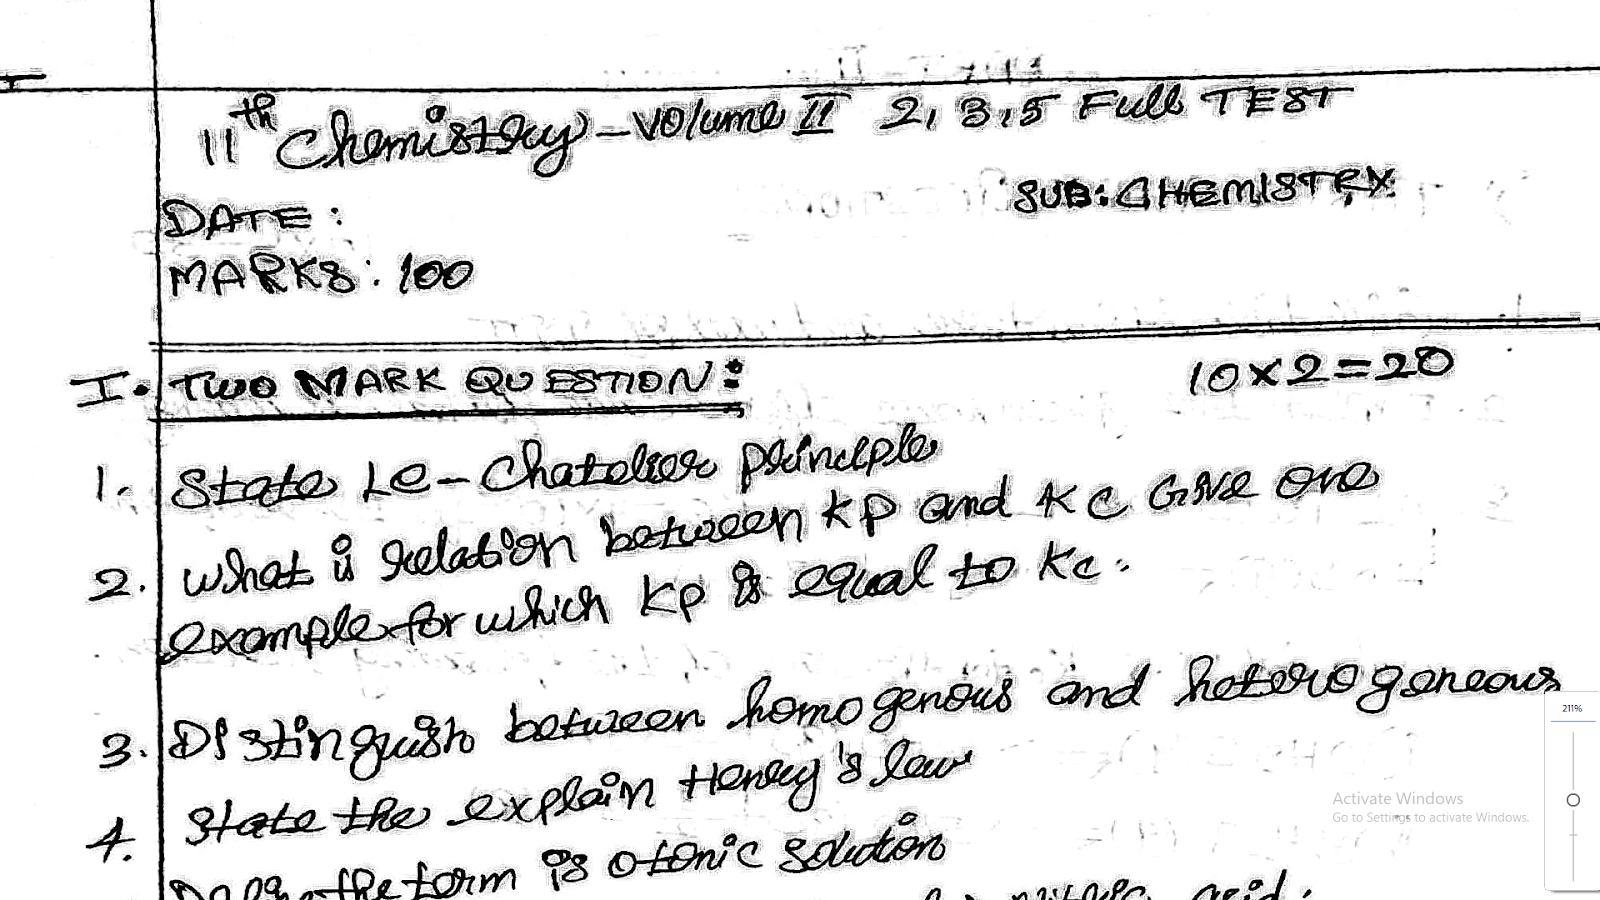 11th Chemistry - Volume II 2, 3, 5 Full TEST
SUB: CHEMISTRY
DATE:
MARKS: 100
I. TWO MARK QUESTION: 10 x 2 = 20
1. State Le-Chatelier principle
2. What is relation between KP and KC Give one
example for which Kp is equal to Kc.
3. Distinguish between homogenous and heterogeneous
4. State the explain Henry's law
the term is otonic solution
nitric acid.
211%
Activate Windows
Go to Settings to activate Windows.